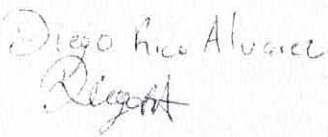 Diego Rico Alvarez
DiegoA